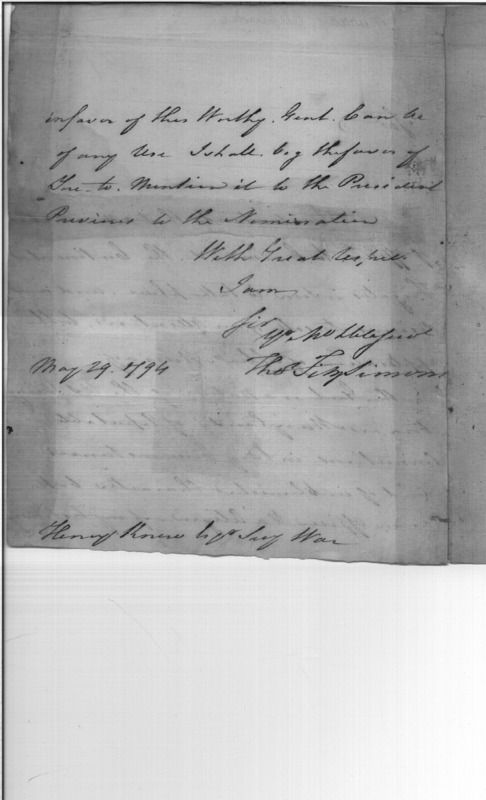 in favor of this Worthy. Gent. Can be
of any Use I shall. beg the favor of
to. Mention it to the President
Previous to the Nomination
With Great Respect
I am
Sir
Yr. Mo Hble Servt
May 29. 1794 Thos. FitzSimons
Henry Knox Esqr. Secy War